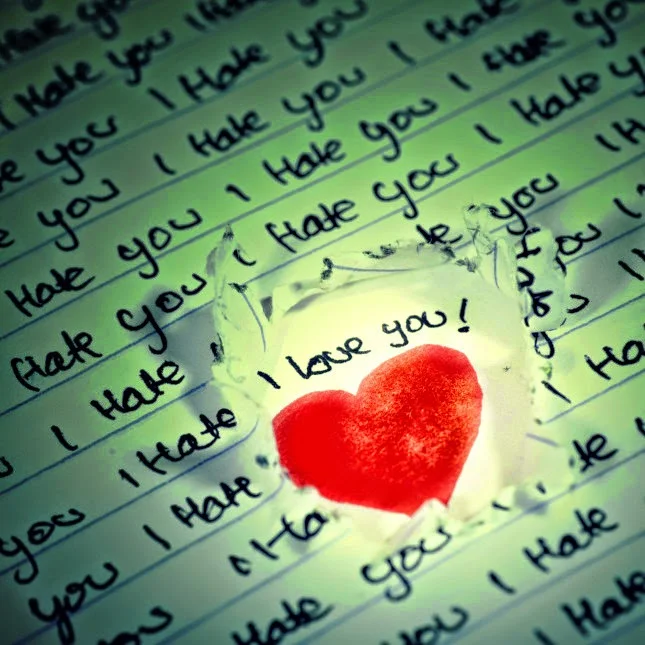 Hate you
I Hate you I Hate
you I Hate you
you I Hate you I Hate
Hate you I Hate you I Hate you
Hate you I Hate you I Hate
I Hate you I
I Hate you I
I love you!
you I Hate I
you I Ha
you Hate you
Hate you I Hate
I Hate